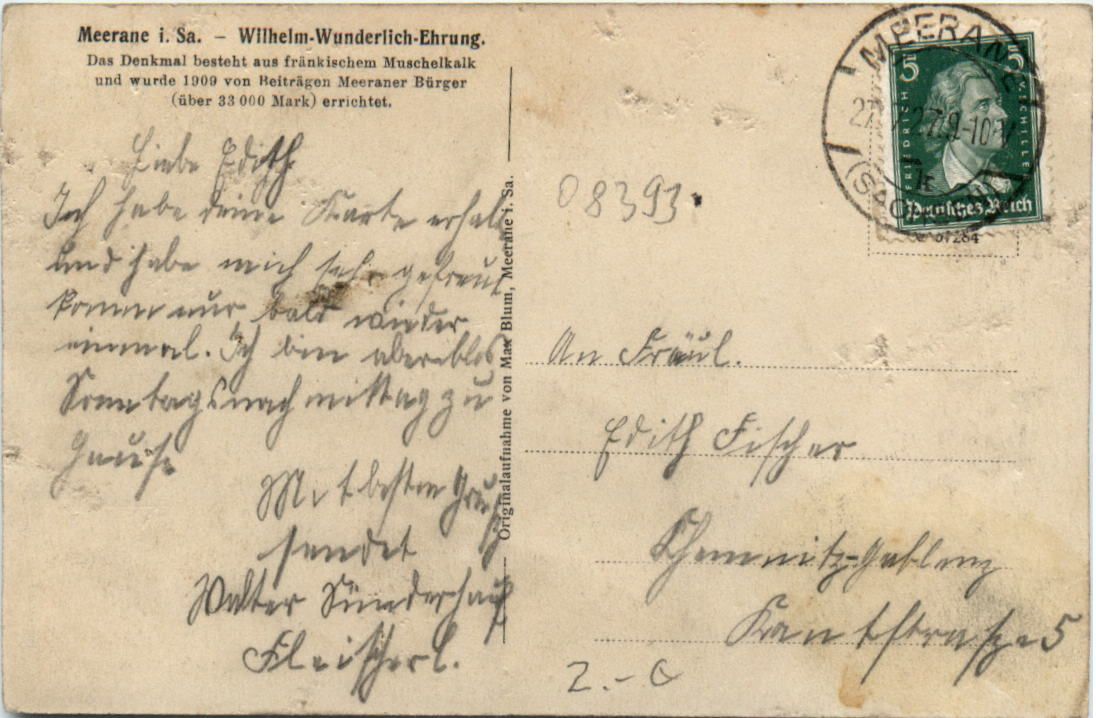 Meerane i. Sa. – Wilhelm-Wunderlich-Ehrung.
Das Denkmal besteht aus fränkischem Muschelkalk
und wurde 1909 von Beiträgen Meeraner Bürger
(über 33 000 Mark) errichtet.
Liebe Edith
Ich habe deine Karte erhalt
und habe mich sehr gefreut
komm nur bald wieder
einmal. Ich bin aber blos
Sonntagsnachmittag zu
Hause
Mit besten Gruß
sendet
Walter Sünderhauf
Fleischerl.
Originalaufnahme von Max Blum, Meerane i. Sa.
MEERANE
27. 27.9-10
(SACHSEN)
5 5
FRIEDRICH V SCHILLER
Deutsches Reich
61284
08393
An Fräul.
Edith Fischer
Chemnitz-Gablenz
Kantstraße 5
2.-